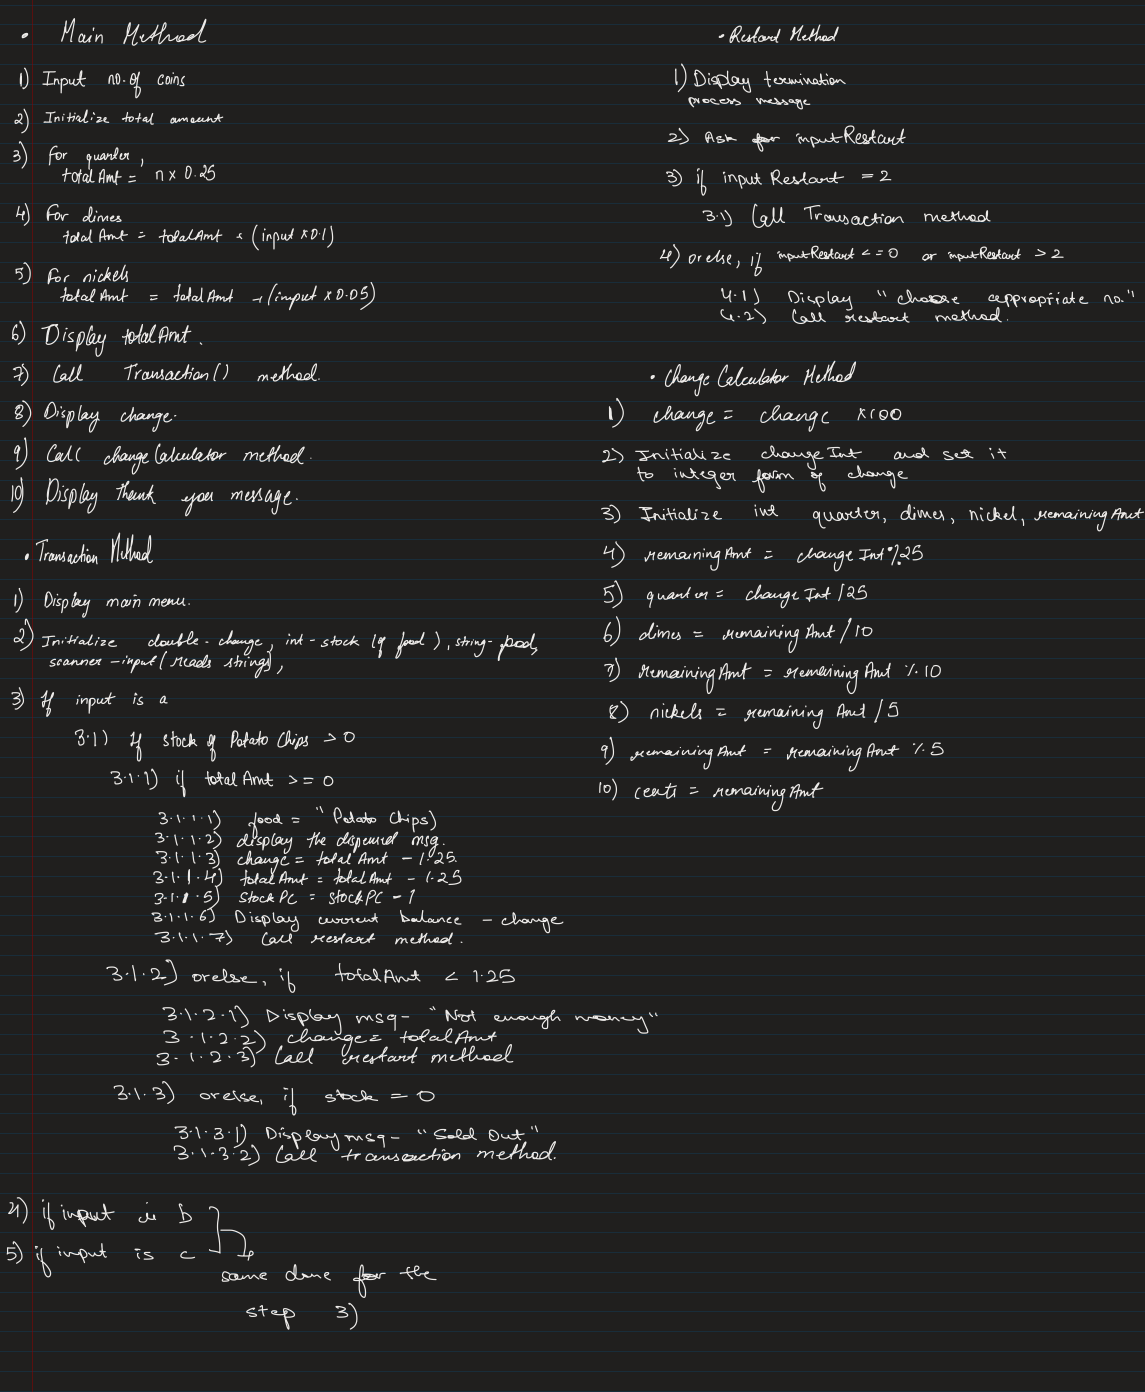 • Main Method
1) Input no. of coins
2) Initialize total amount
3) For quarter,
totalAmt = n x 0.25
4) For dimes
total Amt = totalAmt + (input x 0.1)
5) For nickels
total Amt = total Amt + (input x 0.05)
6) Display totalAmt.
7) Call Transaction() method.
8) Display change.
9) Call changeCalculator method.
10) Display thank you message.
• Transaction Method
1) Display main menu.
2) Initialize double-change, int-stock (of food), string-food,
scanner-input (reads strings),
3) If input is a
3.1) If stock of Potato Chips > 0
3.1.1) if total Amt >= 0
3.1.1.1) food = "Potato Chips)
3.1.1.2) display the dispensed msg.
3.1.1.3) change = total Amt - 1.25.
3.1.1.4) total Amt = total Amt - 1.25
3.1.1.5) stock PC = stock PC - 1
3.1.1.6) Display current balance - change
3.1.1.7) Call restart method.
3.1.2) orelse, if totalAmt < 1.25
3.1.2.1) Display msg- "Not enough money"
3.1.2.2) change = totalAmt
3.1.2.3) Call restart method
3.1.3) orelse, if stock = 0
3.1.3.1) Display msg- "Sold Out"
3.1.3.2) Call transaction method.
4) if input is b
5) if input is c
same done for the
step 3)
• Restart Method
1) Display termination
process message
2) Ask for inputRestart
3) if input Restart = 2
3.1) Call Transaction method
4) orelse, if inputRestart <= 0 or inputRestart > 2
4.1) Display "choose appropriate no."
4.2) Call restart method.
• Change Calculator Method
1) change = change x100
2) Initialize changeInt and set it
to integer form of change
3) Initialize int quarter, dimes, nickel, remaining Amt
4) remaining Amt = change Int % 25
5) quarter = change Int / 25
6) dimes = remaining Amt / 10
7) remaining Amt = remaining Amt % 10
8) nickels = remaining Amt / 5
9) remaining Amt = remaining Amt % 5
10) cents = remaining Amt